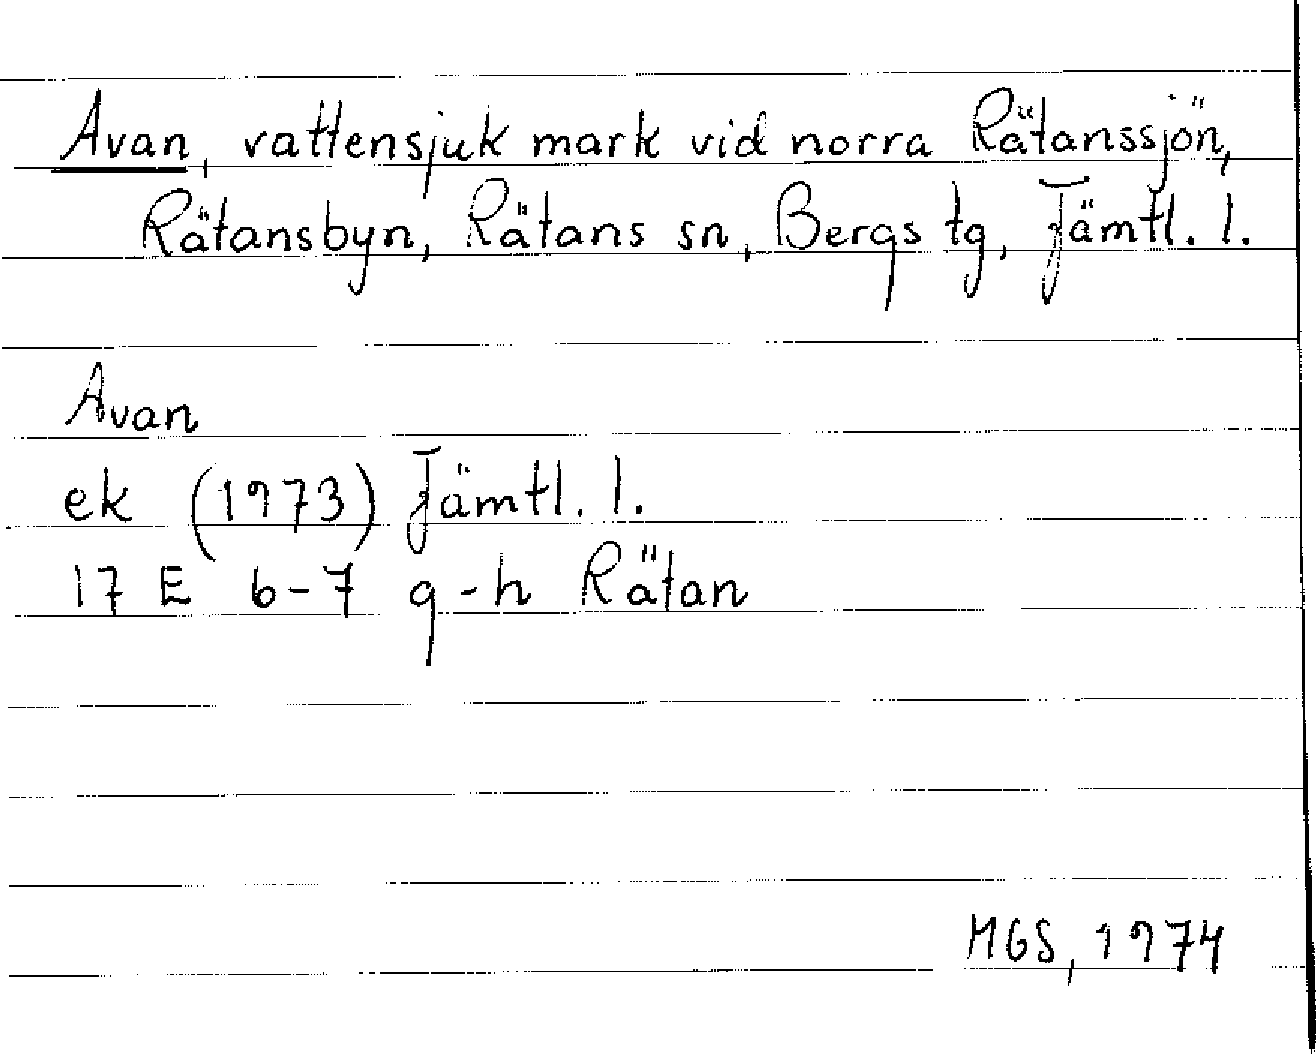 Avan, vattensjuk mark vid norra Rätanssjön,
Rätansbyn, Rätans sn, Bergs tg, Jämtl. l.
Avan
ek (1973) Jämtl. l.
17 E 6-7 g-h Rätan
MGS, 1974